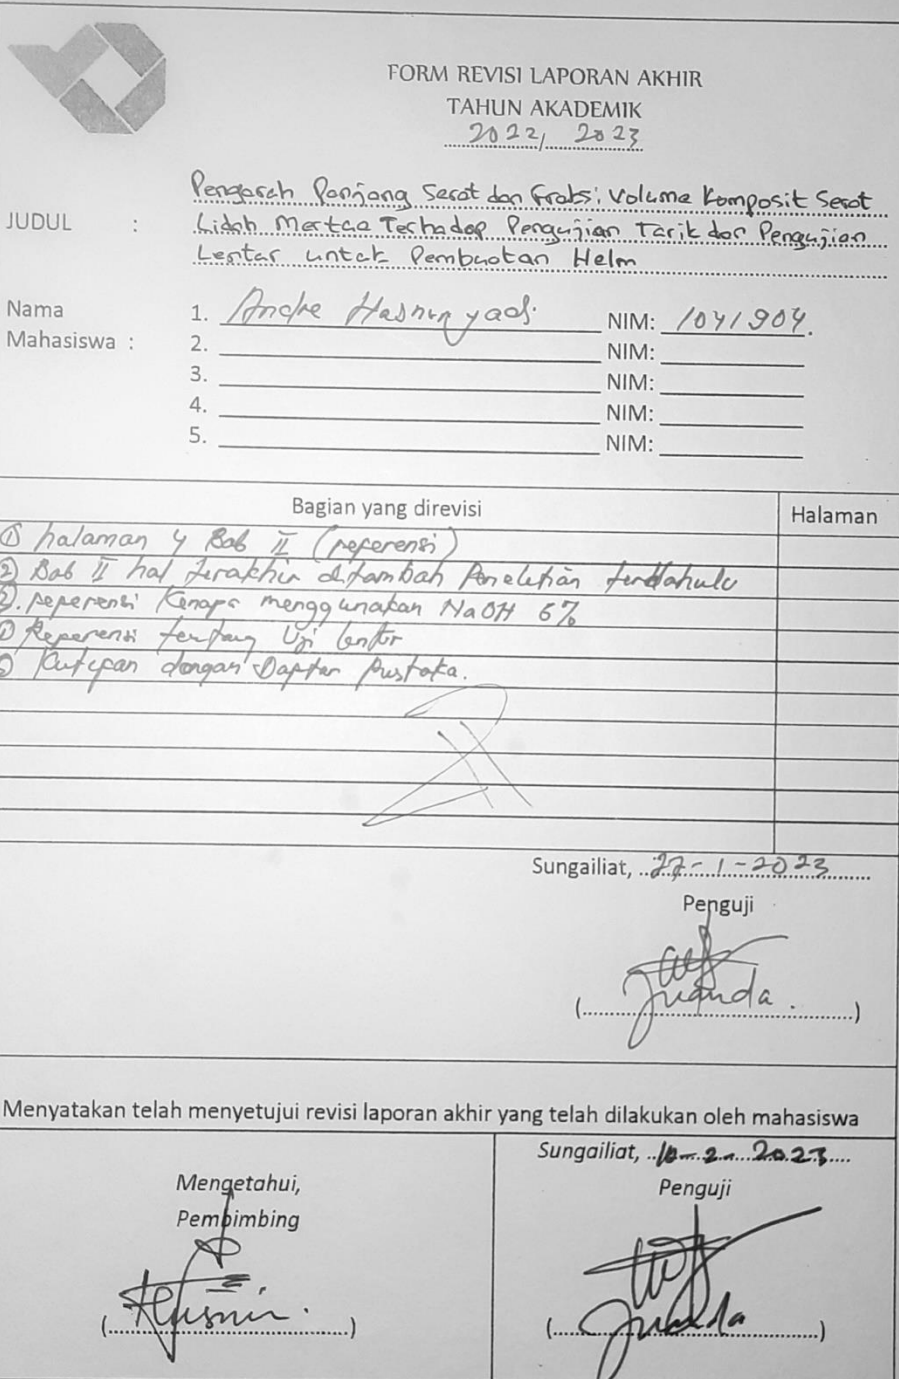 FORM REVISI LAPORAN AKHIR
TAHUN AKADEMIK
2022/ 2023
JUDUL : Pengaruh Panjang Serat dan Fraksi Volume Komposit Serat
Lidah Mertua Terhadap Pengujian Tarik dan Pengujian
Lentur untuk Pembuatan Helm
Nama
Mahasiswa :
1. Andre Hasnunyadi NIM: 1041904.
2. NIM:
3. NIM:
4. NIM:
5. NIM:
Bagian yang direvisi Halaman
① halaman 4 Bab II (referensi)
② Bab II hal terakhir ditambah Penelitian terdahulu
referensi Kenapa menggunakan NaOH 6%
Referensi tentang Uji lentur
Kutipan dengan Daftar Pustaka.
Sungailiat, 27-1-2023
Penguji
(Juanda.)
Menyatakan telah menyetujui revisi laporan akhir yang telah dilakukan oleh mahasiswa
Mengetahui,
Pembimbing
Sungailiat, 10-2-2023
Penguji
(Juanda)